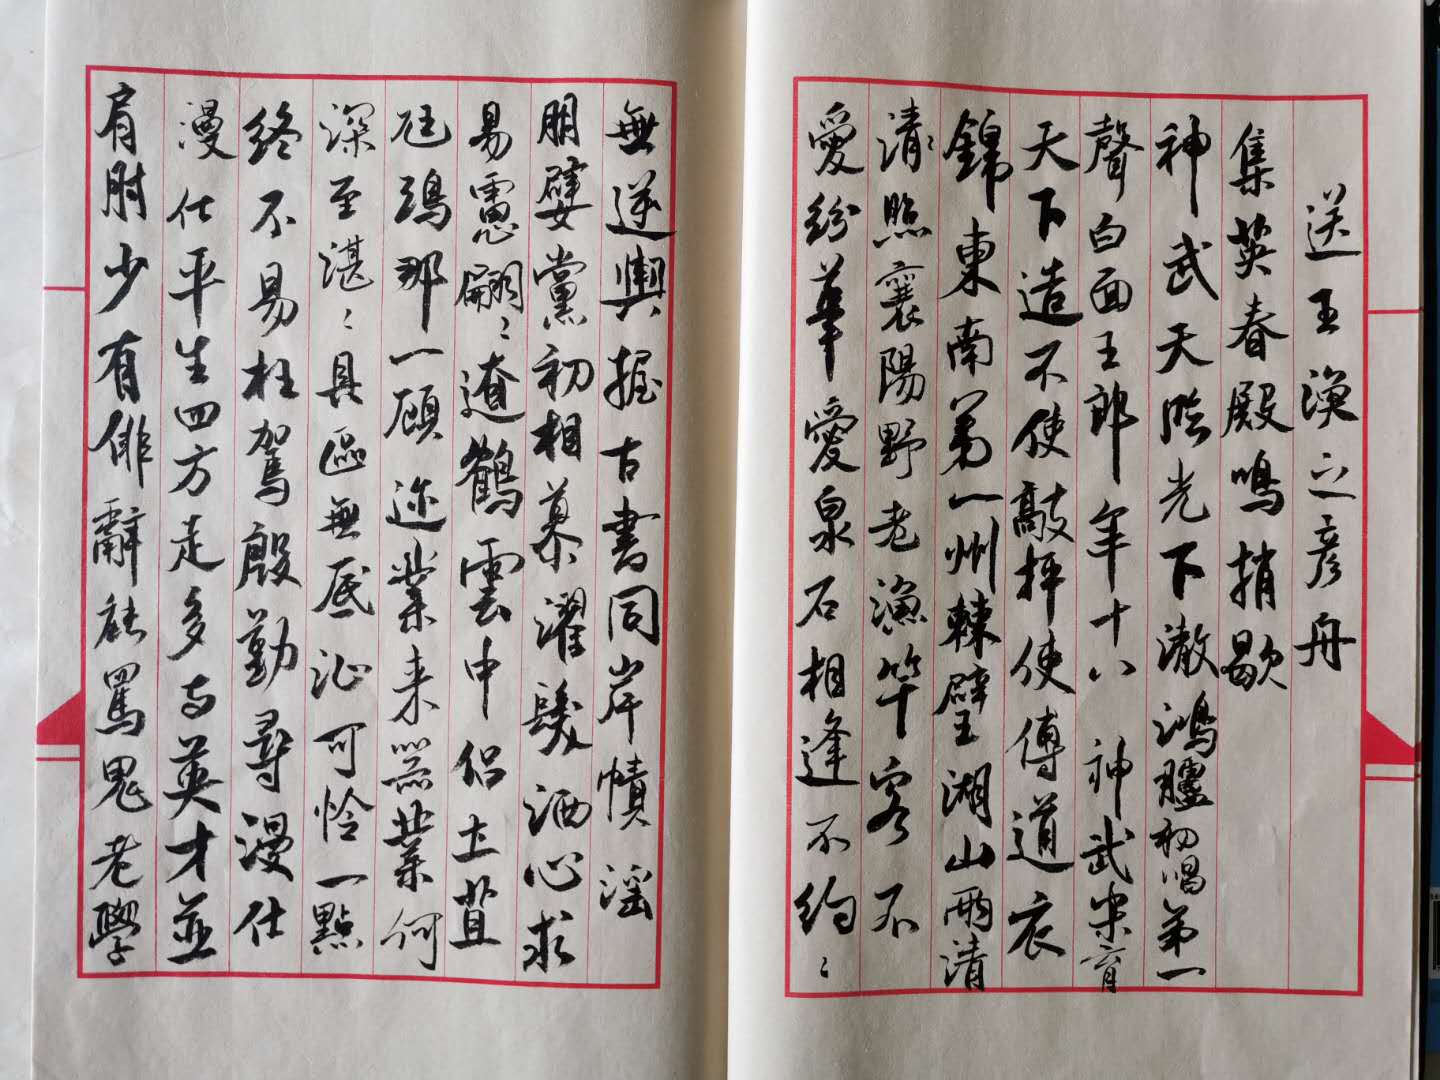 送王渙之彦舟
集英春殿鳴捎歇
神武天臨光下澈鴻臚初唱第一
聲白面王郎年十八神武樂育
天下造不使敲抨使傳道衣
錦東南第一州棘璧湖山兩清
清照襄陽野老漁竿客不
愛紛華愛泉石相逢不約〻
無逆輿握古書同岸幘淫
朋嬖黨初相慕濯髮洒心求
易慮翩〻遼鶴雲中侣土苴
尪鴟那一顧迩業来器業何
深至湛〻具區無底沚可怜一點
終不易枉駕殷勤尋漫仕
漫仕平生四方走多与英才並
肩肘少有俳辭能罵鬼老學